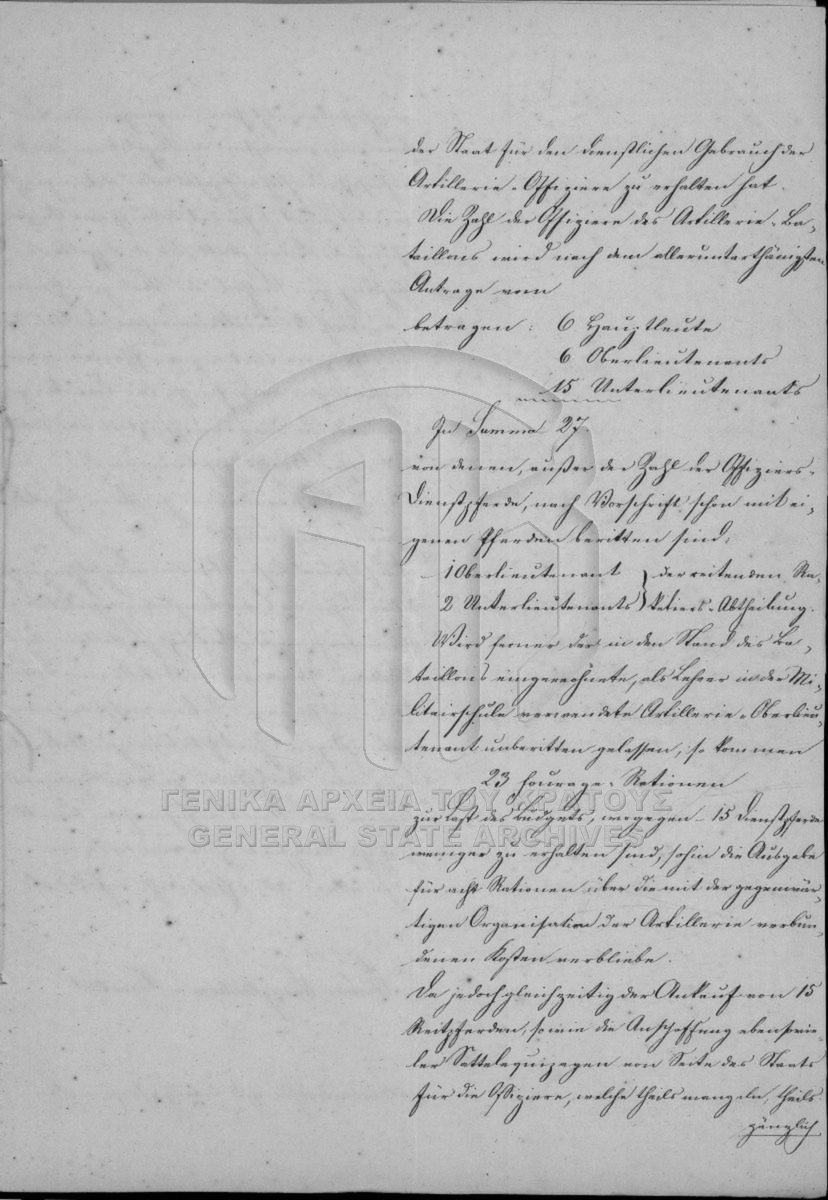 der Staat für den dienstlichen Gebrauch der
Artillerie-Offiziere zu erhalten hat.
Die Zahl der Offiziere des Artillerie-Ba-
taillons wird nach dem allerunterthänigsten
Antrage vom
betragen: 6 Hauptleute
6 Oberlieutenants
15 Unterlieutenants
In Summa 27
von denen, außer der Zahl der Offiziers-
Dienstpferde, nach Vorschrift schon mit ei-
genen Pferden beritten sind:
1 Oberlieutenant } der reitenden Ra-
2 Unterlieutenants } ketiers-Abtheilung.
Wird ferner der in den Stand des Ba-
taillons eingerechnete, als Lehrer in der Mi-
litairschule verwendete Artillerie-Oberlieu-
tenant unberitten gelassen, so kommen
23 Fourage-Rationen
ΓΕΝΙΚΑ ΑΡΧΕΙΑ ΤΟΥ ΚΡΑΤΟΥΣ
zur Last des Budgets, wogegen 15 Dienstpferde
GENERAL STATE ARCHIVES
weniger zu erhalten sind, sohin die Ausgabe
für acht Rationen über die mit der gegenwär-
tigen Organisation der Artillerie verbun-
denen Kosten verbliebe.
Da jedoch gleichzeitig der Ankauf von 15
Reitpferden, sowie die Anschaffung ebensovie-
ler Sattelequipagen von Seite des Staats
für die Offiziere, welche theils mangeln, theils
gänzlich